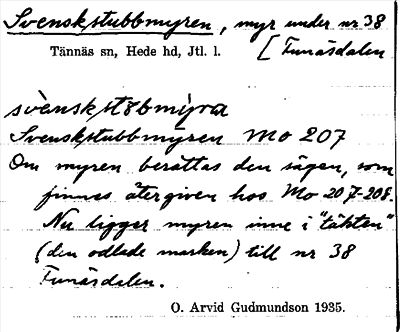 Svenskstubbmyren, myr under nr 38
Tännäs sn, Hede hd, Jtl. l.
[Funäsdalen
Svenskstubbmyren Mo 207
Om myren berättas den sägen, som
finnes återgiven hos Mo 207-208.
Nu ligger myren inne i "täkten"
(den odlade marken) till nr 38
Funäsdalen.
O. Arvid Gudmundson 1935.